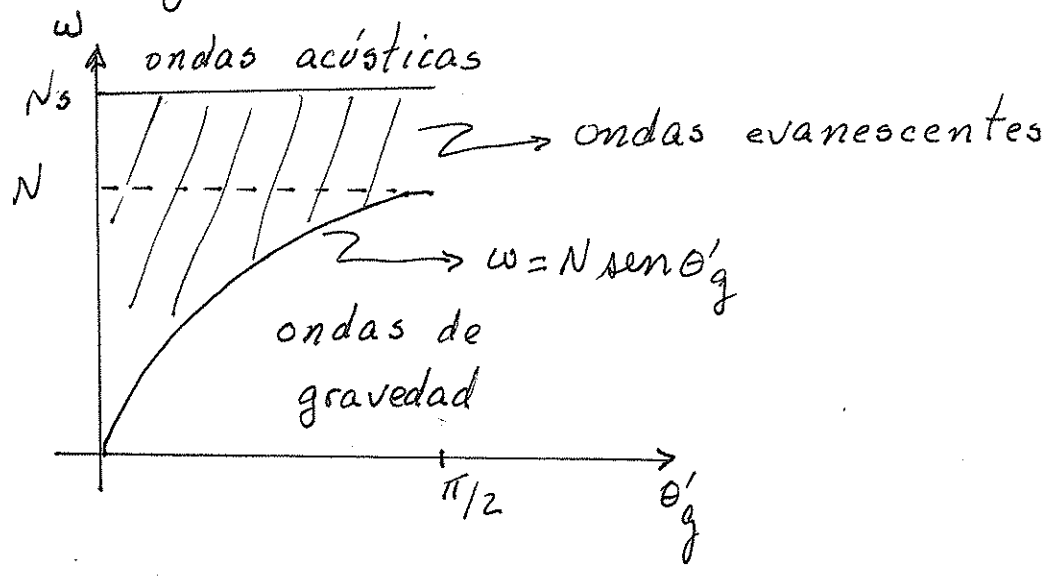 ω
ondas acústicas
Ns
ondas evanescentes
N
ω = N sen θ'g
ondas de
gravedad
π/2
θ'g